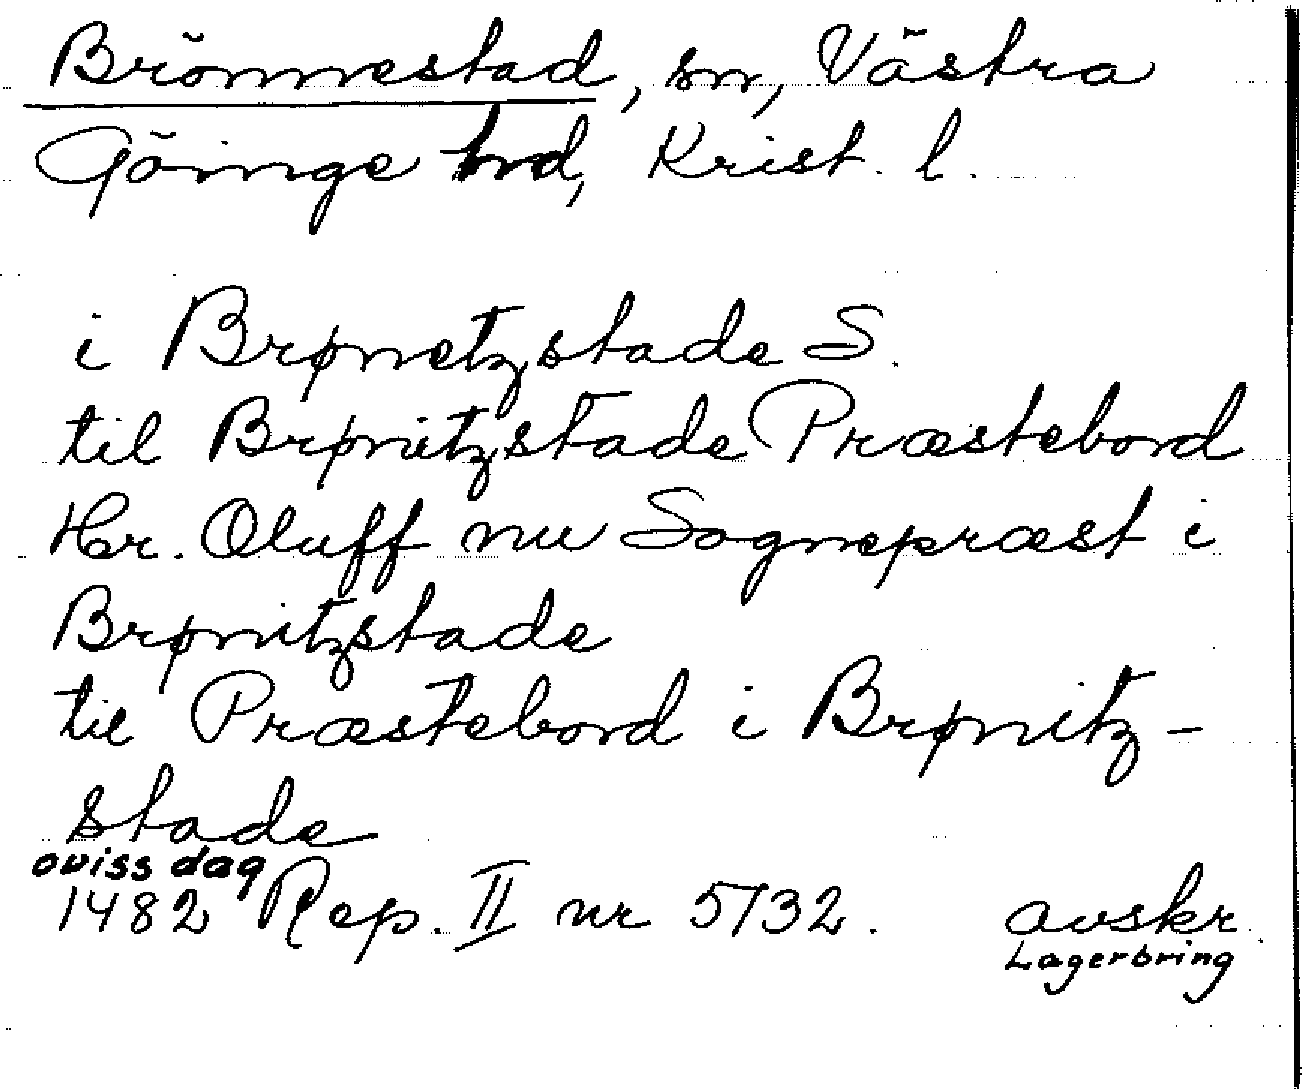 Brönnestad, sn, Västra
Göinge hd, Krist. l.
i Brønetzstade S.
til Brønitzstade Præstebord
Her. Oluff nu Sognepræst i
Brønitzstade
til Præstebord i Brønitz-
stade
oviss dag
1482 Rep. II nr 5732. avskr.
Lagerbring